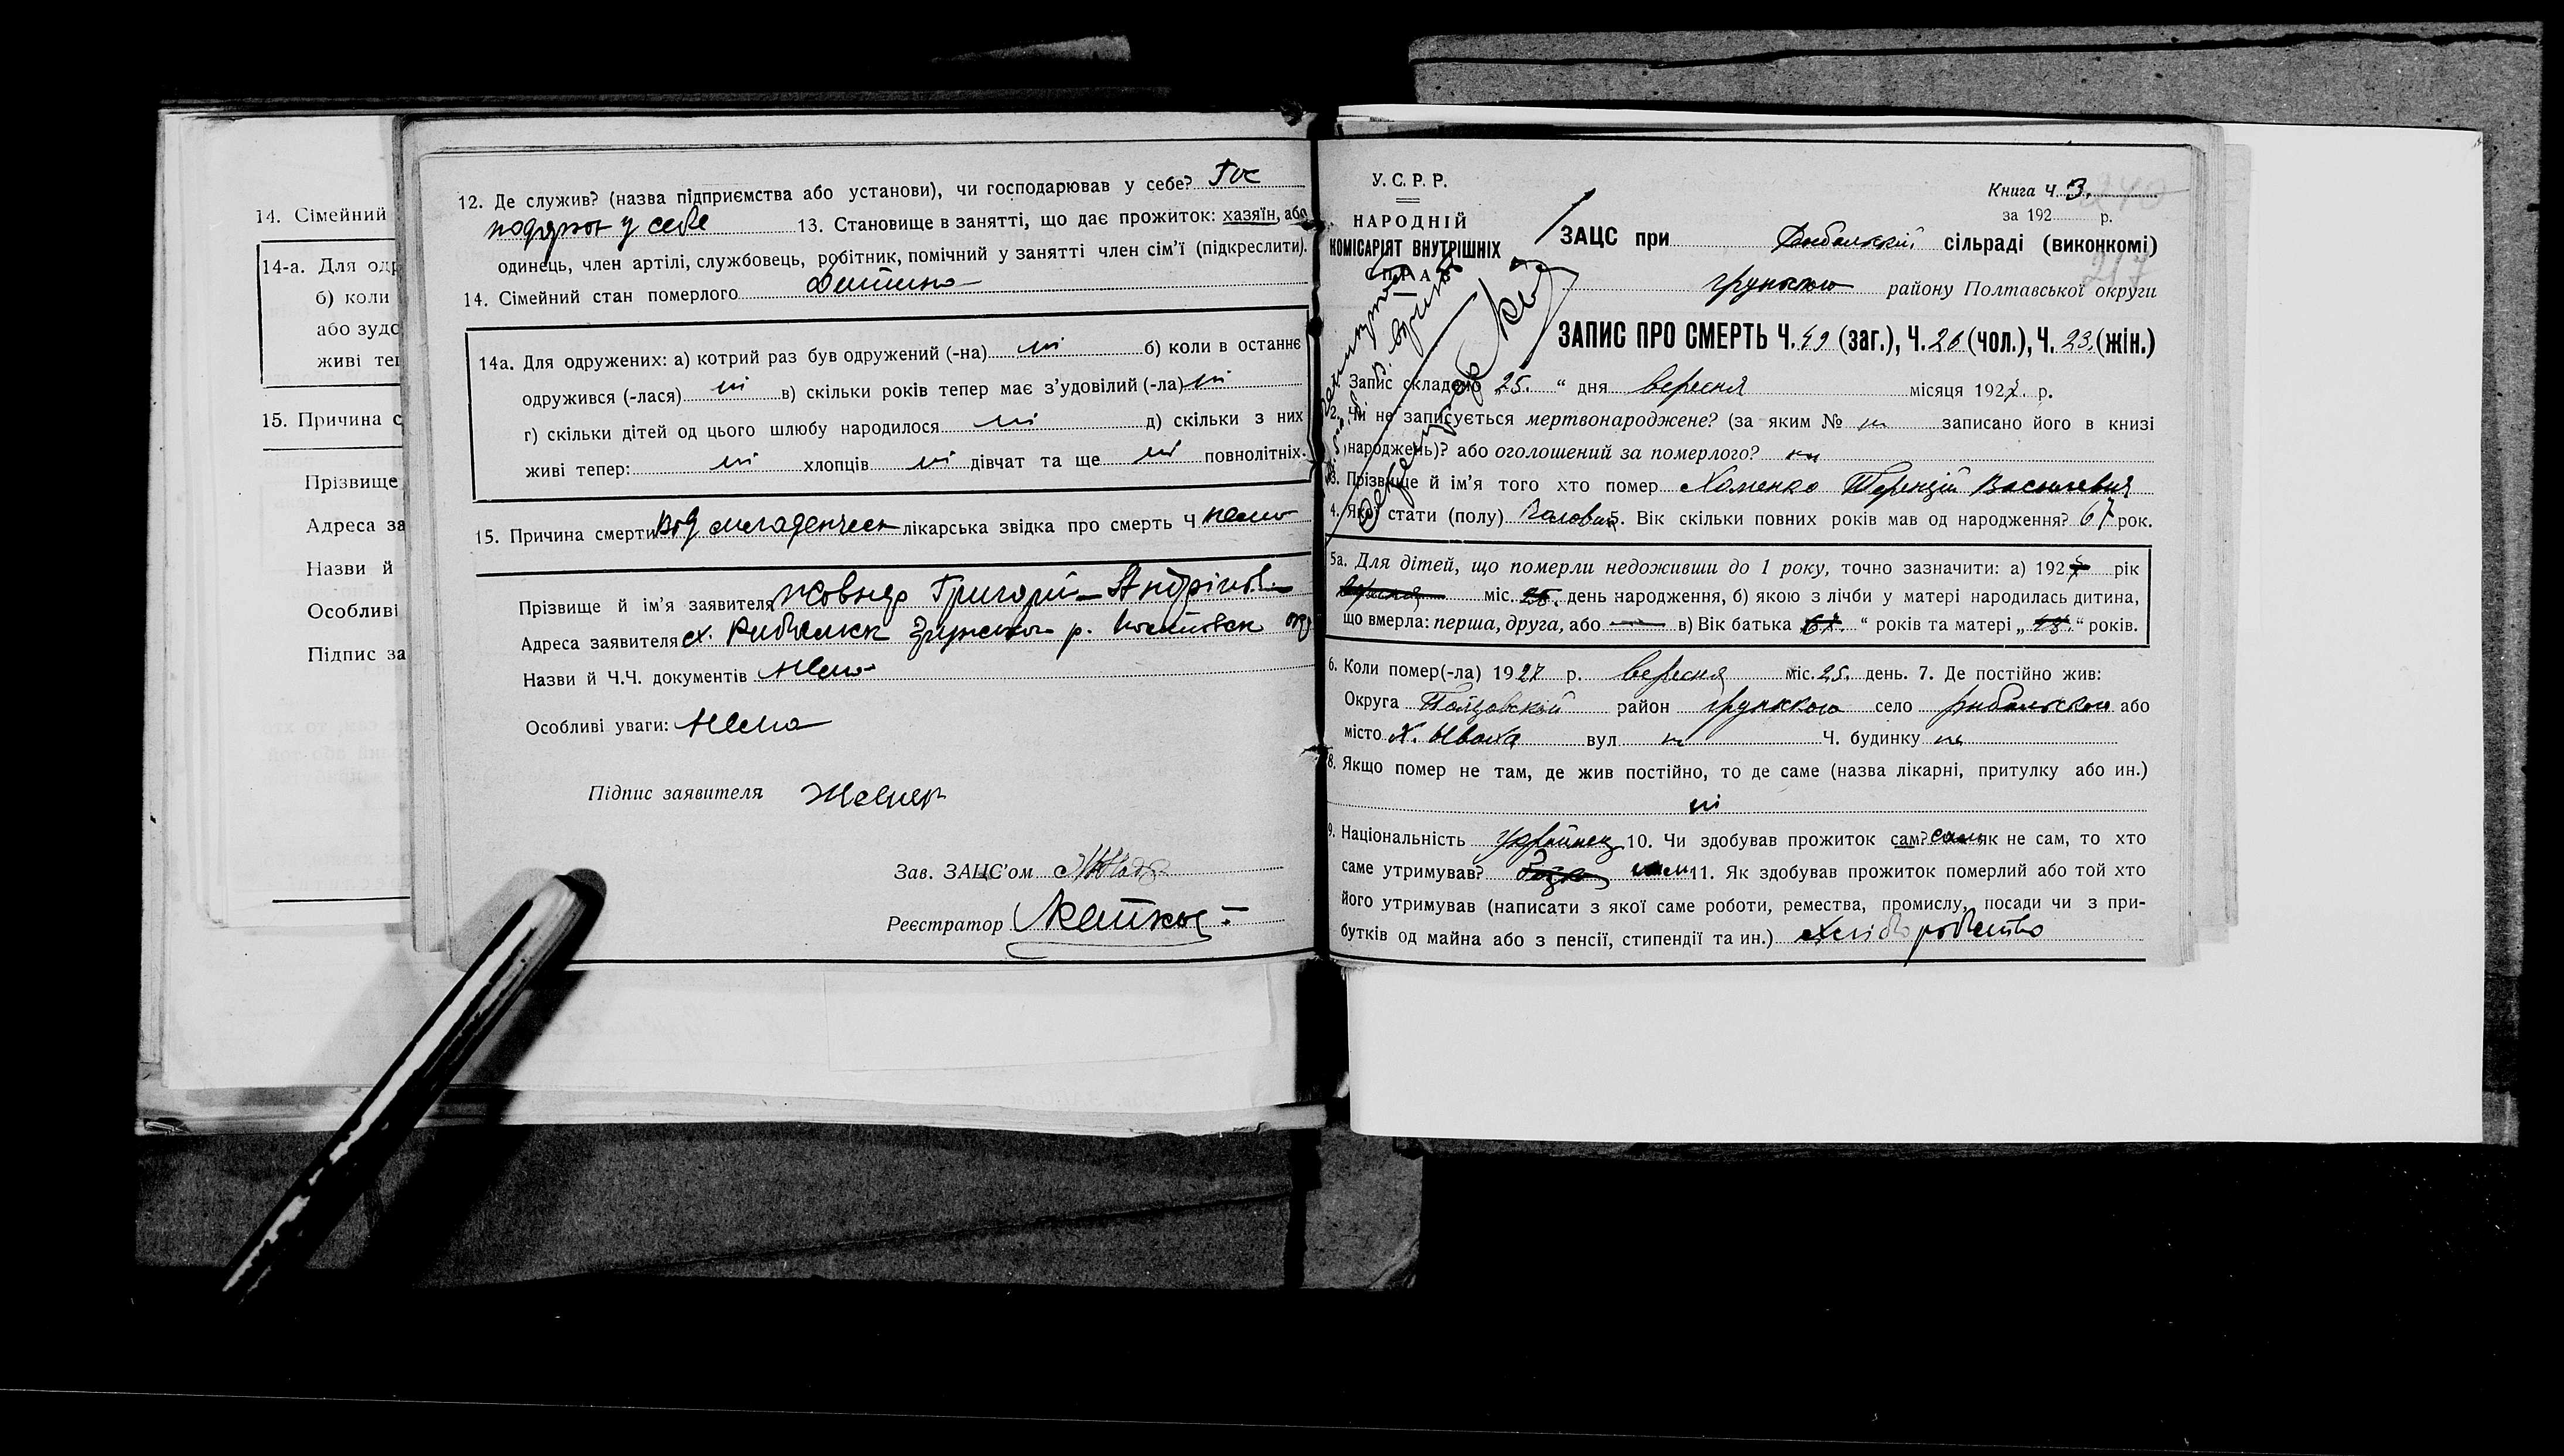 14. Сімейний
14-а. Для одр
б) коли
або зудо
живі теп
15. Причина с
Прізвище
Адреса за
Назви й
Особливі
Підпис за
12. Де служив? (назва підприємства або установи), чи господарював у себе? Гос
подарюв у себе 13. Становище в занятті, що дає прожиток: хазяїн, або
одинець, член артілі, службовець, робітник, помічний у занятті член сім'ї (підкреслити).
14. Сімейний стан померлого Дитина
14а. Для одружених: а) котрий раз був одружений (-на) ні б) коли в останнє
одружився (-лася) ні в) скільки років тепер має з'удовілий (-ла) ні
г) скільки дітей од цього шлюбу народилося ні д) скільки з них
живі тепер: ні хлопців ні дівчат та ще ні повнолітніх.
15. Причина смерти від лікарська звідка про смерть Ч нема
Прізвище й ім'я заявителя Жовнер Григорій
Адреса заявителя р.
Назви й Ч.Ч. документів Нема
Особливі уваги: Нема
Підпис заявителя Жовнер
Зав. ЗАЦС'ом
Реєстратор
У. С. Р. Р.
НАРОДНІЙ
КОМІСАРІЯТ ВНУТРІШНІХ
СПРАВ
Книга ч 3.
за 192 р.
ЗАЦС при сільраді (виконкомі)
217
району Полтавської округи
ЗАПИС ПРО СМЕРТЬ Ч. 49 (заг.), Ч. 26 (чол.), Ч. 23. (жін.)
Запис складено 25. “ дня вересня місяця 1927. р.
2. Чи не записується мертвонароджене? (за яким № ні записано його в книзі
народжень)? або оголошений за померлого? ні
3. Прізвище й ім'я того хто помер Хоменко Терентій Васильевич
4. Якої стати (полу) 5. Вік скільки повних років мав од народження? 67 рок.
5а. Для дітей, що померли недоживши до 1 року, точно зазначити: а) 192 рік
міс. день народження, б) якою з лічби у матері народилась дитина,
що вмерла: перша, друга, або в) Вік батька 67. “ років та матері „ “ років.
6. Коли помер(-ла) 1927 р. вересня міс. 25. день. 7. Де постійно жив:
Округа район село або
місто Х. вул ні Ч. будинку ні
8. Якщо помер не там, де жив постійно, то де саме (назва лікарні, притулку або ин.)
ні
9. Національність українец 10. Чи здобував прожиток сам? сам як не сам, то хто
саме утримував? сам 11. Як здобував прожиток померлий або той хто
його утримував (написати з якої саме роботи, ремества, промислу, посади чи з при-
бутків од майна або з пенсії, стипендії та ин.) хліборобство